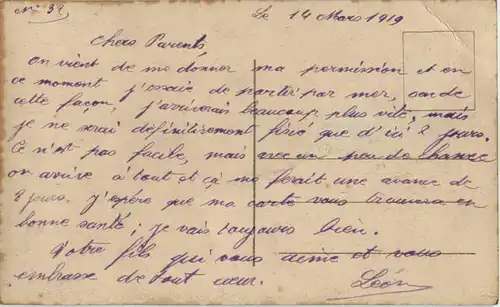 N° 32
Le 14 Mars 1919
Chers Parents,
On vient de me donner ma permission et en
ce moment j'essaie de partir par mer, car de
cette façon, j'arriverais beaucoup plus vite, mais
je ne serai définitivement fixé que d'ici 2 jours.
Ce n'est pas facile, mais avec un peu de chance
on arrive à tout et ça me ferait une avance de
8 jours. J'espère que ma carte vous trouvera en
bonne santé; je vais toujours bien.
Votre fils qui vous aime et vous
embrasse de tout cœur.
Léon